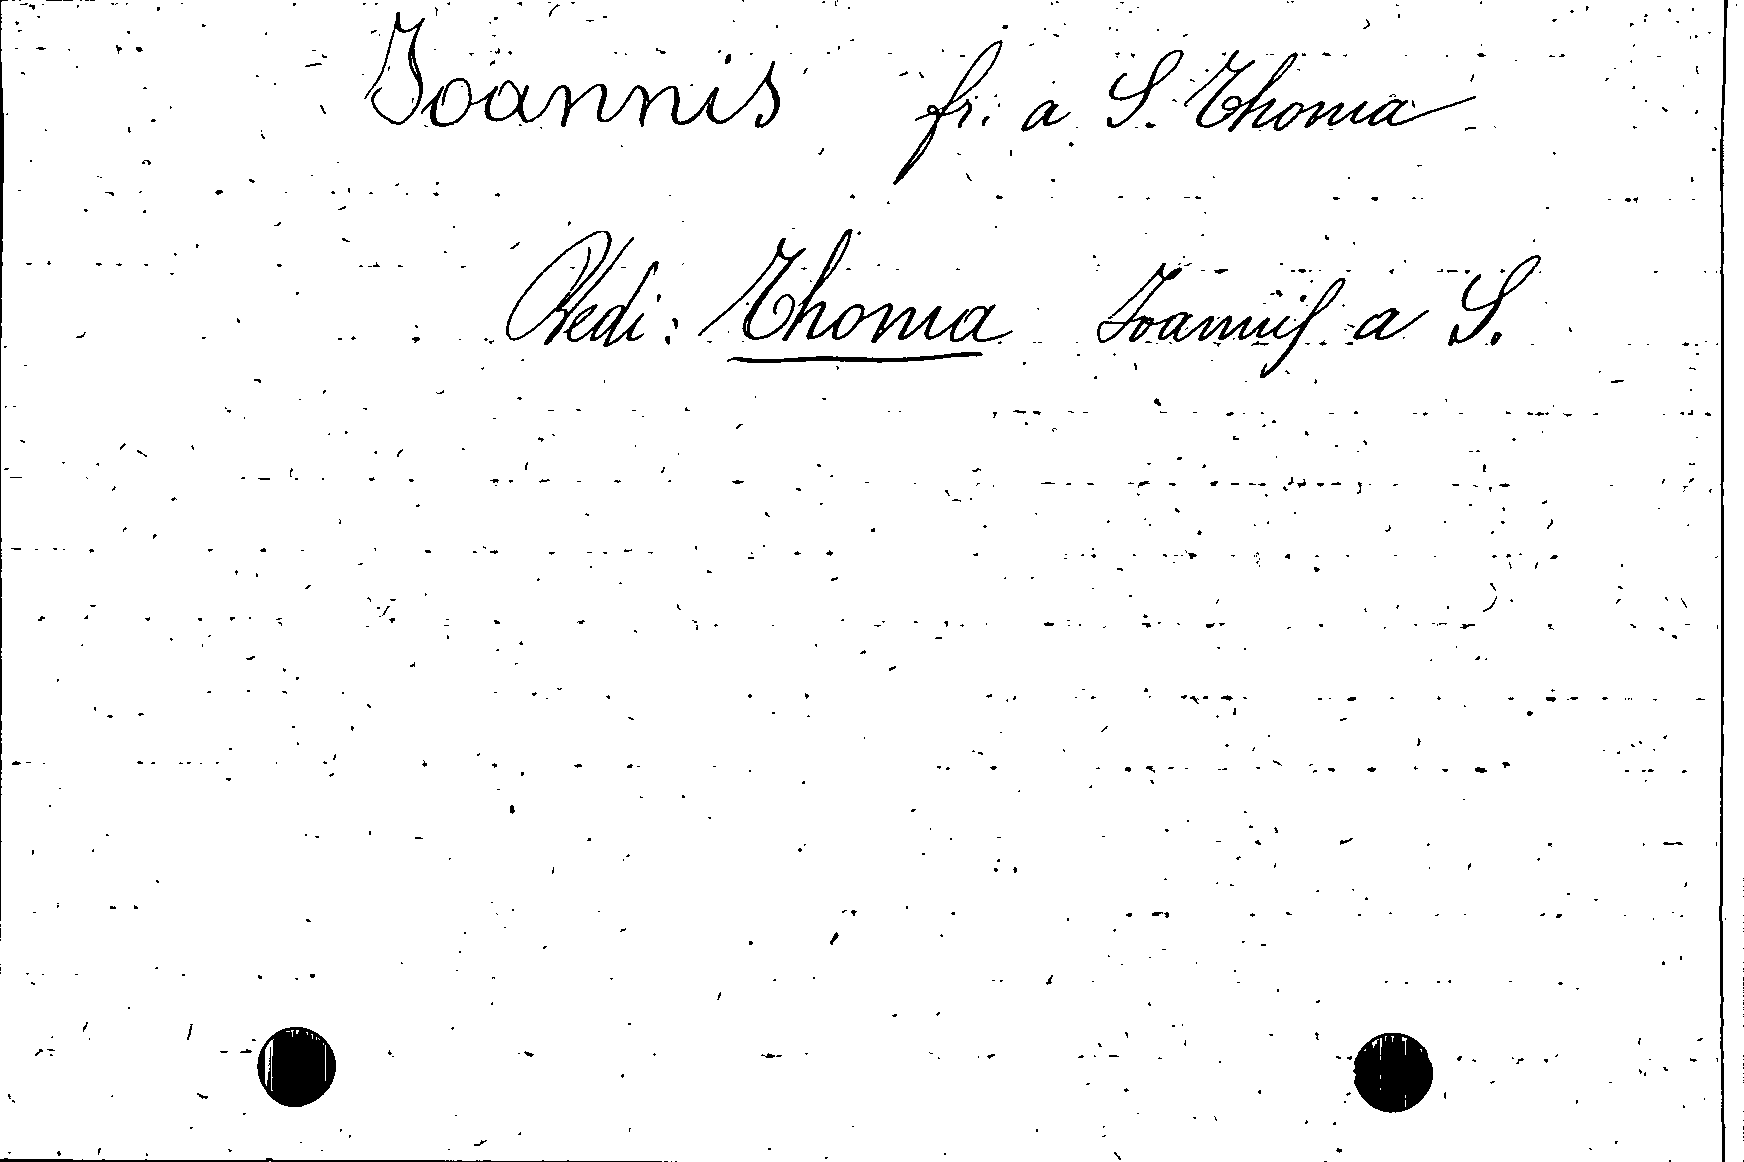 Joannis fr. a S. Thoma
Vedi: Thoma Joannis a S.